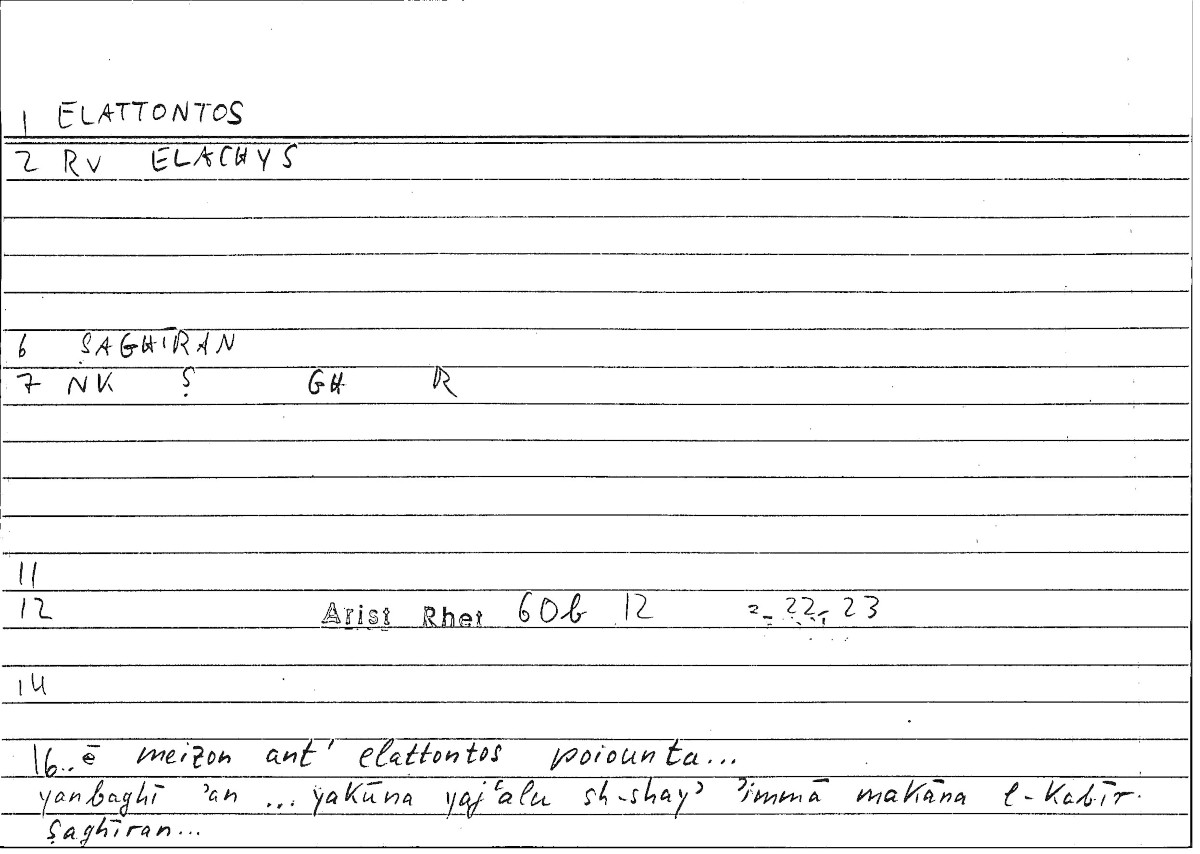 1 ELATTONTOS
2 RV ELACHYS
6 ṢAGHĪRAN
7 NK Ṣ GH R
11
12 Arist Rhet 60b 12 = 22, 23
14
16.. ē meizon ant' elattontos poiounta...
yanbaghī ʾan ... yakūna yajʿalu sh-shayʾ ʾimmā makāna l-kabīr
ṣaghīran...